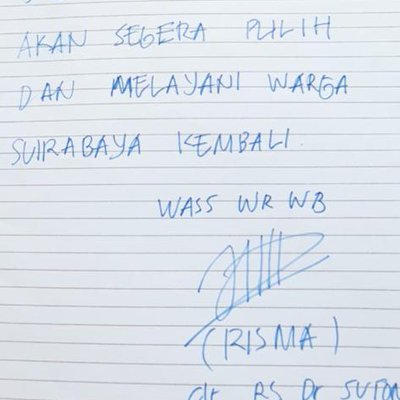 AKAN SEGERA PULIH
DAN MELAYANI WARGA
SURABAYA KEMBALI.
WASS WR WB
(RISMA)
RS Dr SUTOM